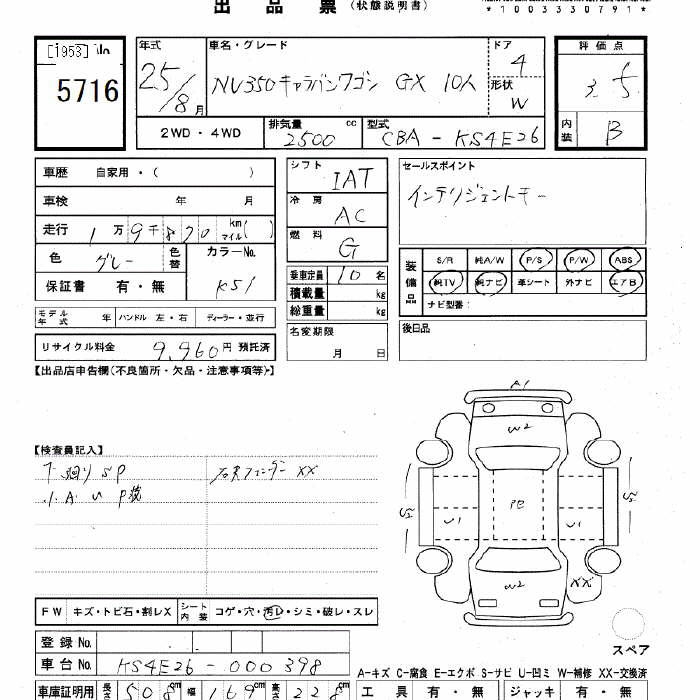 出品票(状態説明書)
*1003330791*
[1953] No
5716
年式 25/8月
車名・グレード NV350キャラバンワゴン GX 10人
ドア 4
形状 W
評価点 3.5
内装 B
2WD・4WD
排気量 2500 cc
型式 CBA-KS4E26
車歴 自家用・( )
車検 年 月
走行 1万9千820 km マイル( )
色 グレー 色替
カラーNo. K51
保証書 有・無
モデル年式 年 ハンドル 左・右 ディーラー・並行
リサイクル料金 9,960円 預託済
シフト IAT
冷房 AC
燃料 G
乗車定員 10名
積載量 kg
総重量 kg
名変期限 月 日
セールスポイント
インテリジェントキー
装備品
S/R 純A/W P/S P/W ABS
純TV 純ナビ 革シート 外ナビ エアB
ナビ型番:
後日品
【出品店申告欄(不良箇所・欠品・注意事項等)】
【検査員記入】
下廻りSP
右Rフェンダー XX
A1
W2
PE
U1
U1
W2
XX
スペア
FW キズ・トビ石・割レX シート内装 コゲ・穴・汚レ・シミ・破レ・スレ
登録No.
車台No. KS4E26-000398
A-キズ C-腐食 E-エクボ S-サビ U-凹ミ W-補修 XX-交換済
車庫証明用 長さ 508cm 幅 169cm 高さ 228cm
工具 有・無 ジャッキ 有・無